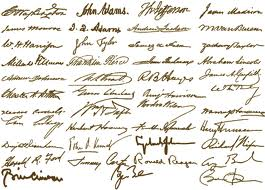 G Washington John Adams Th Jefferson James Madison
James Monroe J. Q. Adams Andrew Jackson M Van Buren
W. H. Harrison John Tyler James K. Polk Zachary Taylor
Millard Fillmore Franklin Pierce James Buchanan Abraham Lincoln
Andrew Johnson U.S. Grant R B Hayes James A. Garfield
Chester A Arthur Grover Cleveland Benj Harrison Wm McKinley
Theodore Roosevelt Wm H Taft Woodrow Wilson Warren G Harding
Calvin Coolidge Herbert Hoover Franklin D Roosevelt Harry Truman
Dwight D Eisenhower John F Kennedy Lyndon B Johnson Richard Nixon
Gerald R. Ford Jimmy Carter Ronald Reagan G Bush
Bill Clinton G Bush